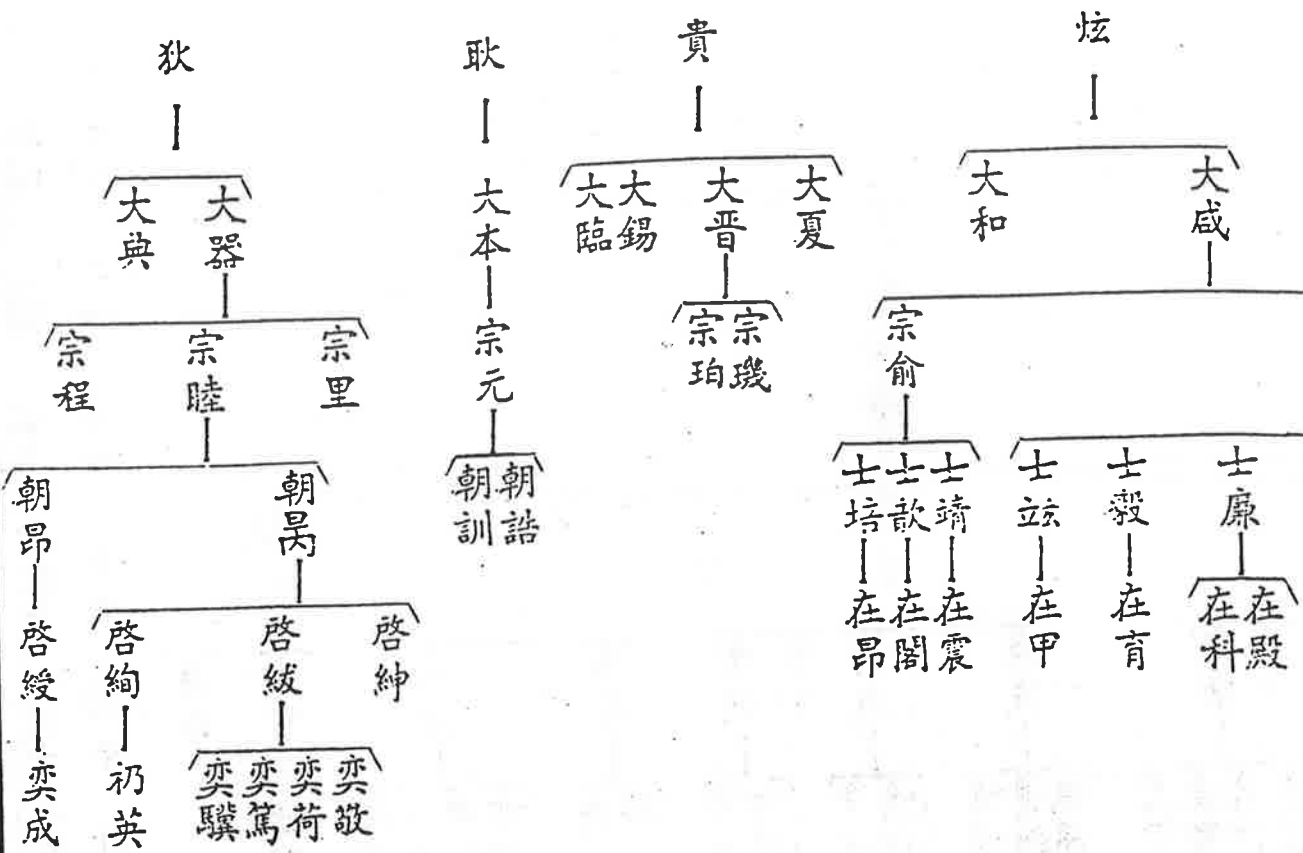 炫
大咸
大和
宗俞
士廉
士毅
士竑
士靖
士歆
士培
在殿
在科
在育
在甲
在震
在閣
在昂
貴
大夏
大晋
大錫
大臨
宗璣
宗珀
耿
大本
宗元
朝誥
朝訓
狄
大器
大典
宗里
宗睦
宗程
朝昺
朝昂
啓紳
啓紱
啓絢
啓綬
奕敬
奕荷
奕篤
奕驥
礽英
奕成